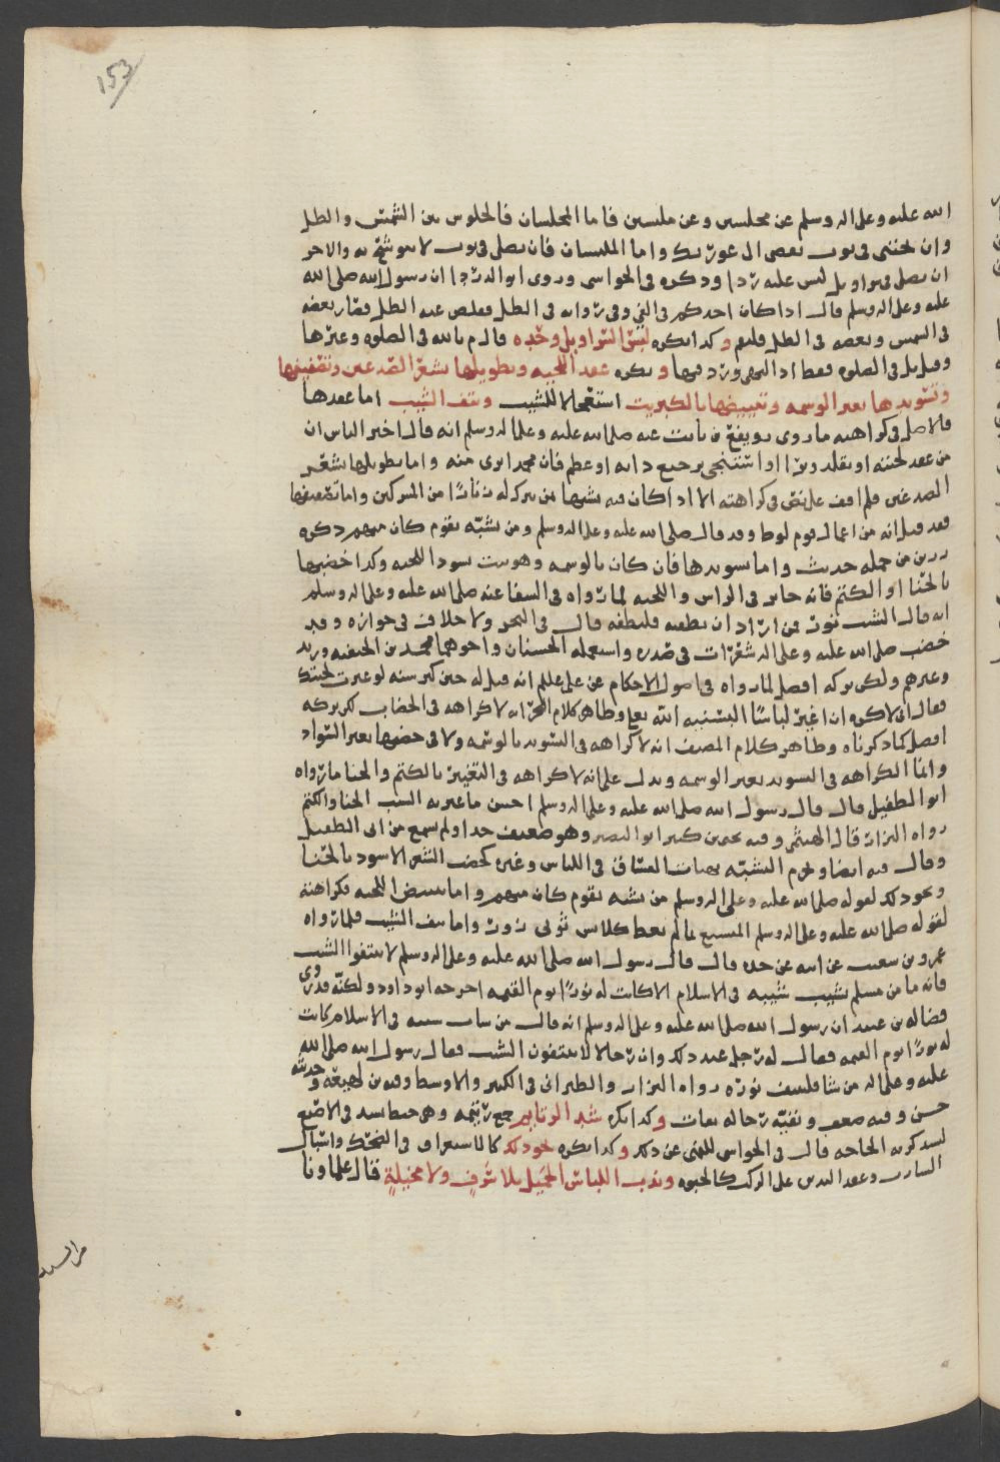 153
الله عليه وعلى اله وسلم عن مجلسين وعن ملبسين فاما المجلسان فالجلوس بين الشمس والظل
وان تحتبي في ثوب يفضي الى عورتك واما الملبسان فان تصلي في ثوب لا توشح به والاخر
ان تصلي في سراويل ليس عليه رداء وذكره في الحواشي وروى ابو الدرداء ان رسول الله صلى الله
عليه وعلى اله وسلم قال اذا كان احدكم في الفي وفي رواية في الظل فقلص عنه الظل فصار بعضه
في الشمس وبعضه في الظل فليقم وكذا يكره لبس السراويل وحده قال م بالله في الصلوه وغيرها
وقيل بل في الصلوه فقط اذ النهي ورد فيها ويكره عقد اللحيه وتطويلها بشعر الصدغين وتصفيفها
وتسويدها بغير الوسمه وتبييضها بالكبريت استعجالا للشيب ونتف الشيب اما عقدها
فالاصل في كراهته ما روى رويفع بن ثابت عنه صلى الله عليه وعلى اله وسلم انه قال اخبر الناس ان
من عقد لحيته او تقلد وترا او استنجى برجيع دابه او عظم فان محمدا بري منه واما تطويلها بشعر
الصدغين فلم اقف على نص في كراهته الا اذا كان فيه تشبها من يتركه من المشركين واما تصفيفها
فقد قيل انه من اعمال قوم لوط وقد قال صلى الله عليه وعلى اله وسلم ومن تشبه بقوم كان منهم ذكره
رزين من جملة حديث واما تسويدها فان كان بالوسمه وهو نبت يسود اللحيه وكذا خضبها
بالحنا او الكتم فانه جايز في الراس واللحيه لما رواه في الشفا عنه صلى الله عليه وعلى اله وسلم
انه قال الشيب نور من اراد ان يطفيه فليطفه قال في البحر ولا خلاف في جوازه وقد
خضب صلى الله عليه وعلى اله شعرات في صدره واستعمله الحسنان واخوهما محمد بن الحنفيه وزيد
وغيرهم ولكن تركه افضل لما رواه في اصول الاحكام عن علي عليلم انه قيل له حين كبر سنه لو غيرت لحيتك
فقال اني لاكره ان اغير لباسا البسنيه الله تعلى وظاهر كلام انه لا كراهه في الخضاب لكن تركه
افضل كما ذكرناه وظاهر كلام المصنف انه لا كراهه في التسويد بالوسمه ولا في خضبها بغير السواد
وانما الكراهه في التسويد بغير الوسمه ويدل على انه لا كراهه في التغيير بالكتم والحنا ما رواه
ابو الطفيل قال قال رسول الله صلى الله عليه وعلى اله وسلم احسن ما غير به الشيب الحنا والكتم
رواه البزار قال الهيثمي وفيه يحيى بن كثير ابو النضر وهو ضعيف جدا ولم يسمع من ابي الطفيل
وقال فيه ايضا ويحرم التشبه بهيات الفساق في اللباس وغيره كخضب الشعر الاسود بالحنا
ونحو ذلك لقوله صلى الله عليه وعلى اله وسلم من تشبه بقوم كان منهم واما تبييض اللحيه فكراهته
لقوله صلى الله عليه وعلى اله وسلم المتشبع بما لم يعط كلابس ثوبي زور واما نتف الشيب فلما رواه
عمرو بن شعيب عن ابيه عن جده قال قال رسول الله صلى الله عليه وعلى اله وسلم لا تنتفوا الشيب
فانه ما من مسلم يشيب شيبه في الاسلام الا كانت له نورا يوم القيمه اخرجه ابو داود ولكنه قد روى
فضاله بن عبيد ان رسول الله صلى الله عليه وعلى اله وسلم انه قال من شاب شيبه في الاسلام كانت
له نورا يوم القيمه فقال له رجل عند ذلك وان رجالا ينتفون الشيب فقال رسول الله صلى الله
عليه وعلى اله من شا فلينتف نوره رواه البزار والطبراني في الكبير والاوسط وفيه بن لهيعه وحديثه
حسن وفيه ضعف وبقيه رجاله ثقات وكذا يكره شد الرتايم جمع رتيمه وهي خيط يشد في الاصبع
ليستذكر به الحاجه قال في الحواشي للنهي عن ذلك وكذا يكره نحو ذلك كالاستغراق في الضحك واسبال
الشارب وعقد اليدين على الركب كالحبوه وندب اللباس الجميل بلا سرف ولا مخيلة قال علماونا